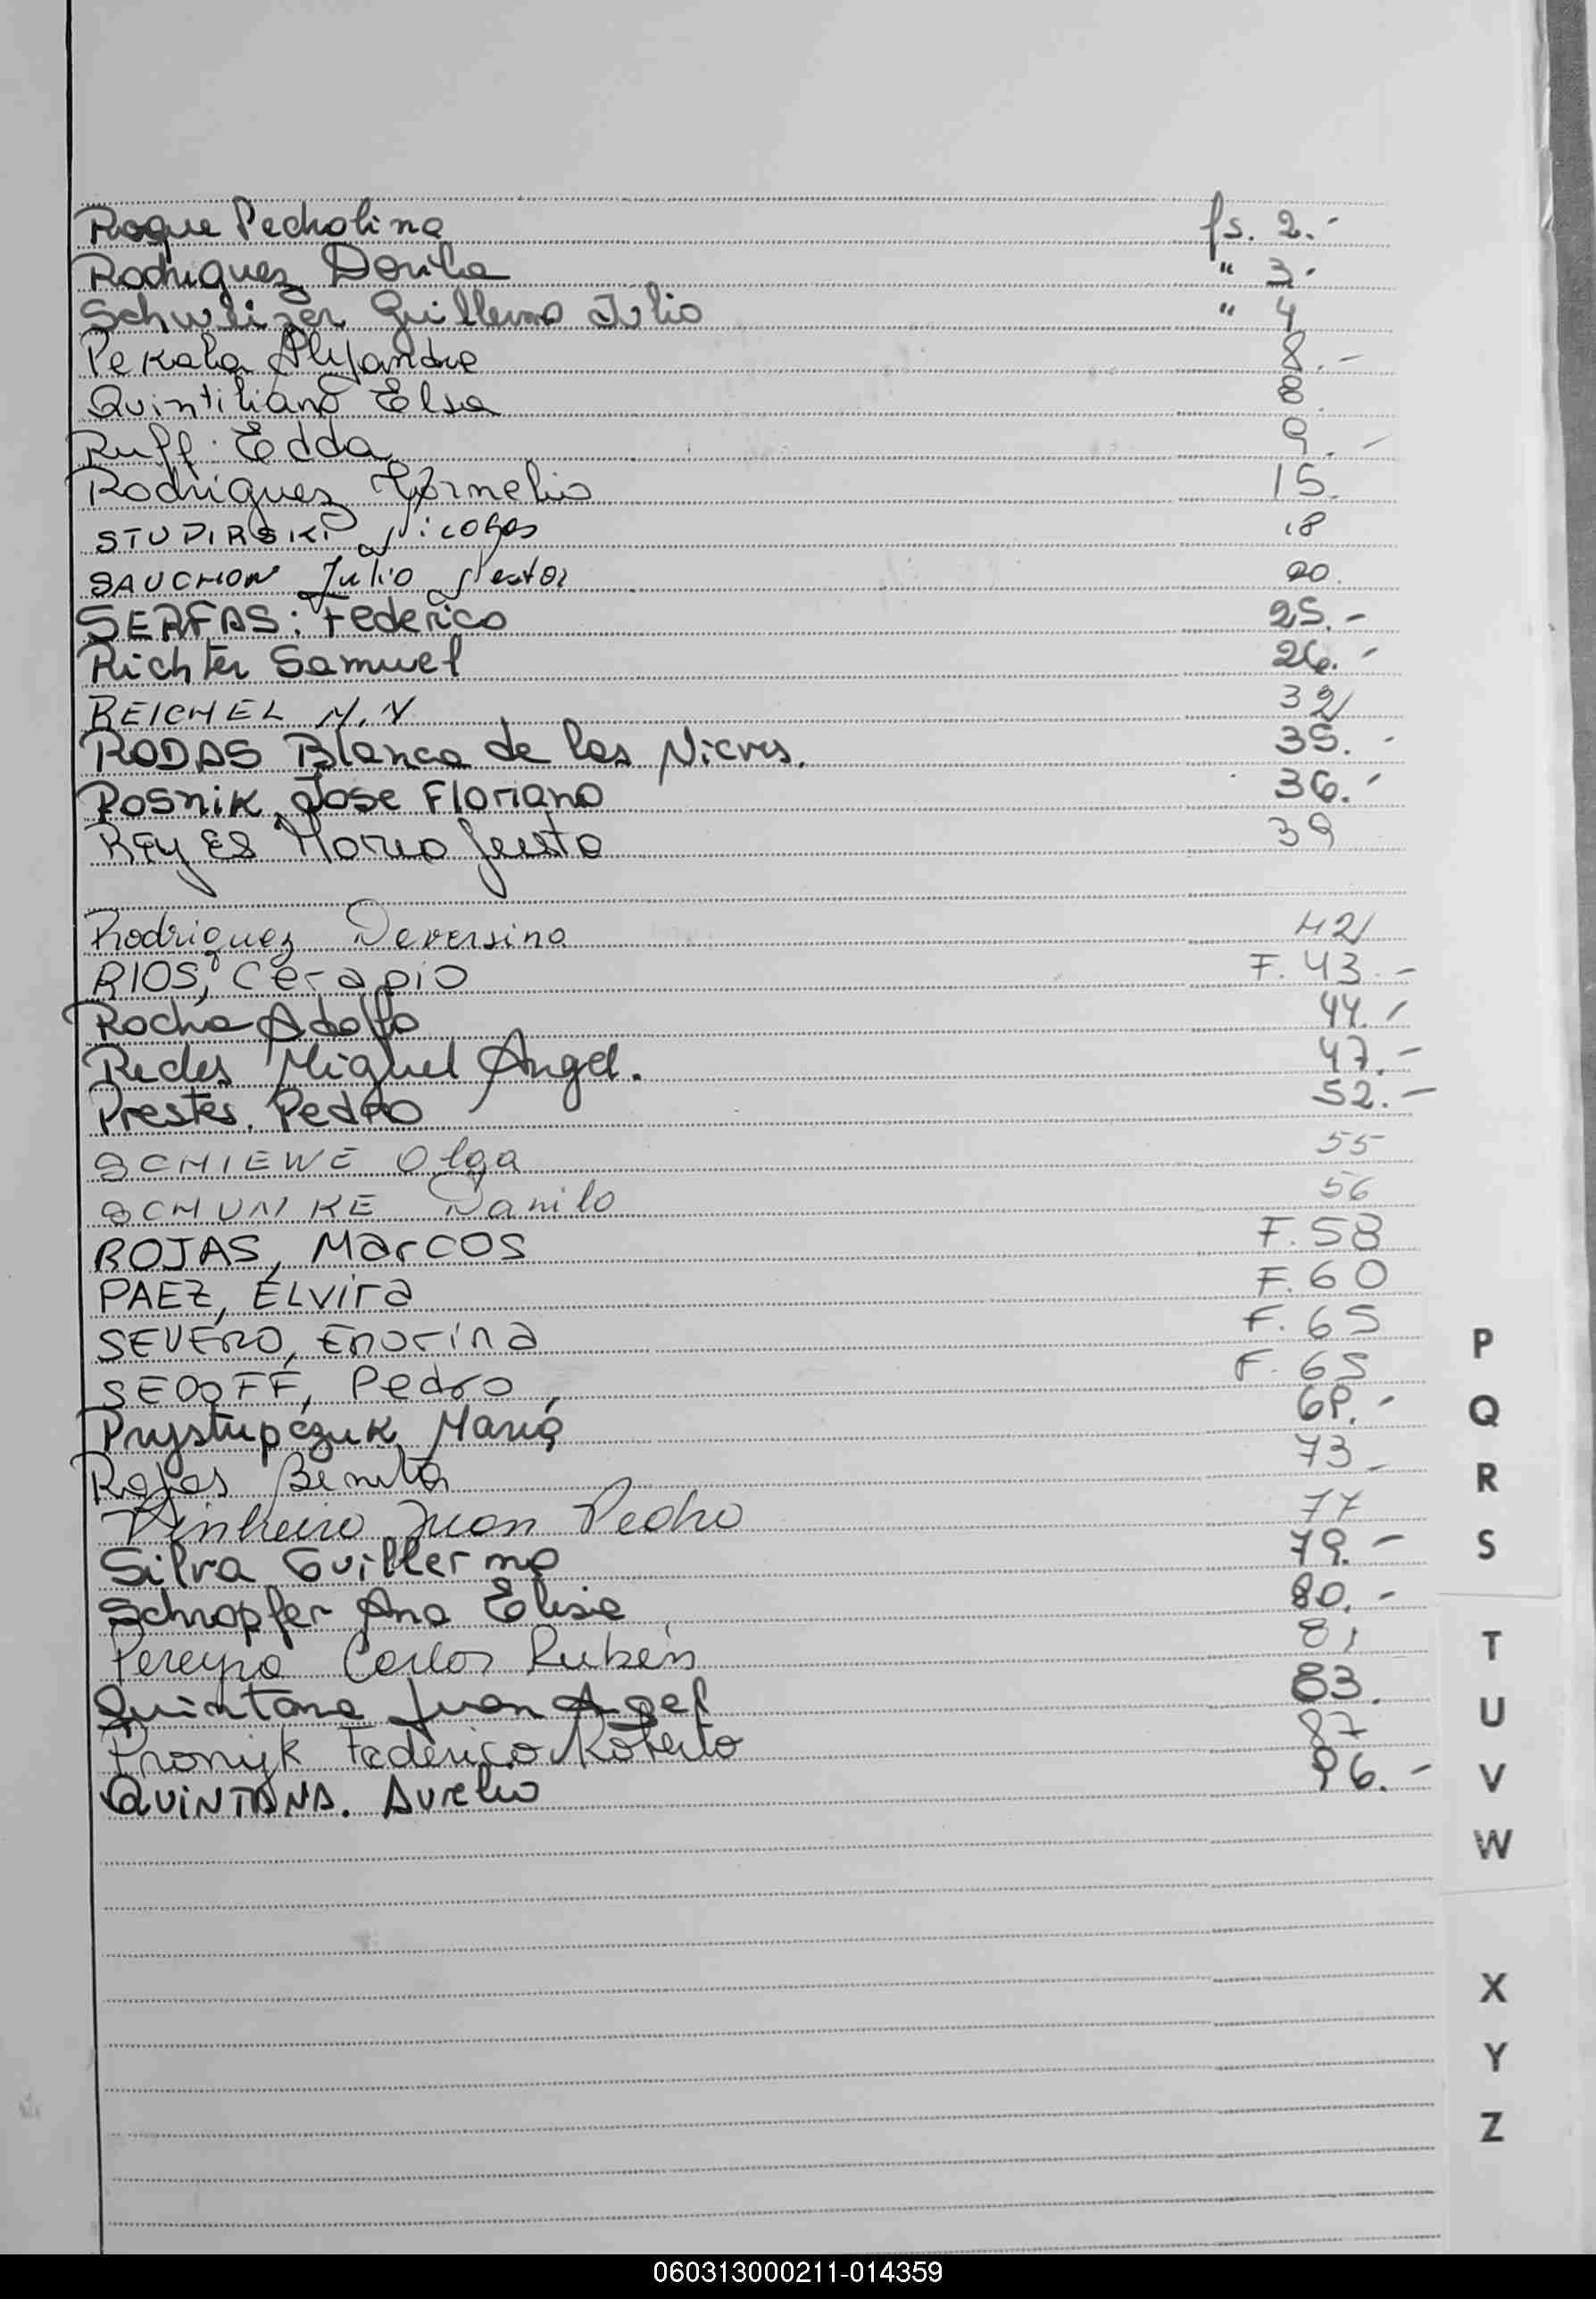 Roque Pedrolina fs. 2.-
Rodriguez Dorila " 3.
Schweizer Guillermo Julio " 4
Pekala Alejandro 8.-
Quintiliano Elsa 8
Ruff: Edda 9.-
Rodriguez Cornelio 15.
STUDIRSKI Nicolas 18
SAUCHON Julio Nestor 20.
SERFAS: Federico 25.-
Richter Samuel 26.-
REICHEL N.N 32
RODAS Blanca de las Nieves. 35.-
Posnik Jose Floriano 36.-
REYES Mario Justo 39
Rodriguez Deversino 42
RIOS, Cerapio F. 43.-
Rocha Adolfo 44.-
Redes Miguel Angel. 47.-
Prestes. Pedro 52.-
SCHIEWE Olga 55
SCHUNKE Danilo 56
ROJAS, Marcos F. 58
PAEZ, ELvira F. 60
SEVERO, Enorina F. 65
SEDOFF, Pedro F. 65
Prystupczuk Maria 68.-
Rojas Benita 73-
Pinheiro Juan Pedro 77
Silva Guillermo 79.-
Schropfer Ana Elisa 80.-
Pereyra Carlos Rubén 81
Quintana Juan Agel 83.
Pronyk Federico Roberto 87
QUINTANA. Aurelio 96.-
P
Q
R
S
T
U
V
W
X
Y
Z
060313000211-014359